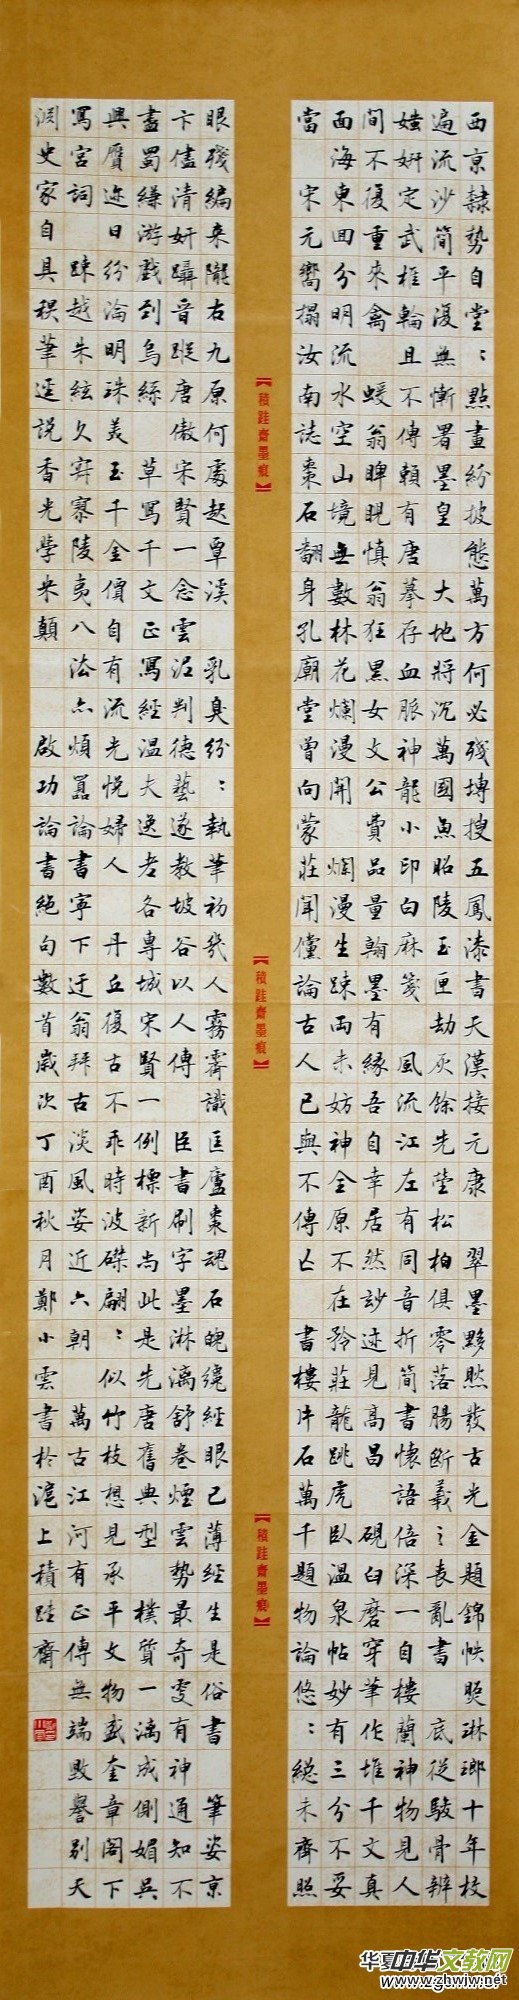 西京隸勢自堂〻點畫紛披態萬方何必殘塼搜五鳳漆書天漢接元康 翠墨黟然發古光金題錦帙照琳瑯十年校
遍流沙簡平復無慚署墨皇 大地將沉萬國魚昭陵玉匣劫灰餘先塋松柏俱零落腸斷羲之喪亂書 底從駿骨辨
媸妍定武椎輪且不傳賴有唐摹存血脈神龍小印白麻箋 風流江左有同音折簡書懷語倍深一自樓蘭神物見人
間不復重來禽 蝯翁睥睨慎翁狂黑女文公費品量翰墨有緣吾自幸居然妙迹見高昌 硯臼磨穿筆作堆千文真
面海東回分明流水空山境無數林花爛漫開 爛漫生疎兩未妨神全原不在矜莊龍跳虎臥溫泉帖妙有三分不妥
當 宋元嚮搨汝南誌棗石翻身孔廟堂曾向蒙莊聞儻論古人已與不傳亡 書樓片石萬千題物論悠〻總未齊照
【積跬齋墨痕】
【積跬齋墨痕】
【積跬齋墨痕】
眼殘編來隴右九原何處起覃溪 乳臭紛〻執筆初幾人霧霽識匡廬棗魂石魄纔經眼已薄經生是俗書 筆姿京
卞儘清妍躡晉蹤唐傲宋賢一念雲泥判德藝遂教坡谷以人傳 臣書刷字墨淋漓舒卷煙雲勢最奇更有神通知不
盡蜀縑游戲到烏絲 草寫千文正寫經溫夫逸老各專城宋賢一例標新尚此是先唐舊典型 樸質一漓成側媚吳
興贋迹日紛淪明珠美玉千金價自有流光悅婦人 丹丘復古不乖時波磔翩〻似竹枝想見承平文物盛奎章閣下
寫宮詞 疎越朱絃久寂寥陵夷八法亦煩囂論書寧下迂翁拜古淡風姿近六朝 萬古江河有正傳無端毀譽別天
淵史家自具筆逕說香光學米顛 啟功論書絕句數首歲次丁酉秋月鄭小雲書於滬上積跬齋
华夏中华文教网
www.zhwjw.net